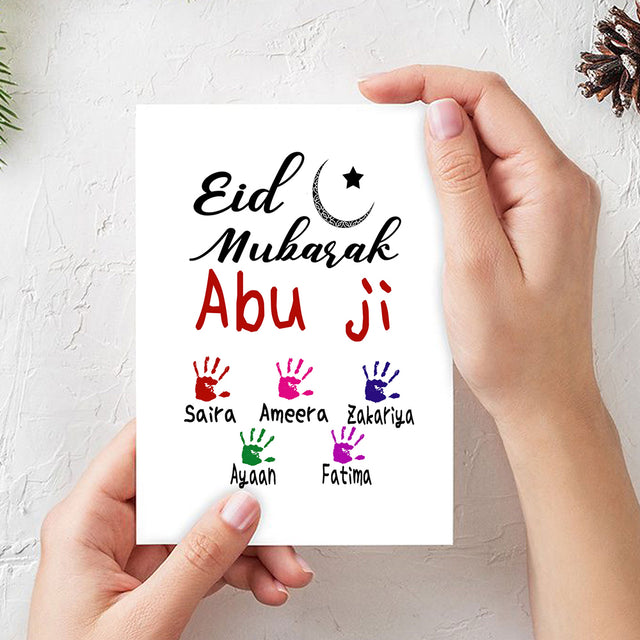 Eid
Mubarak
Abu ji
Saira Ameera Zakariya
Ayaan Fatima